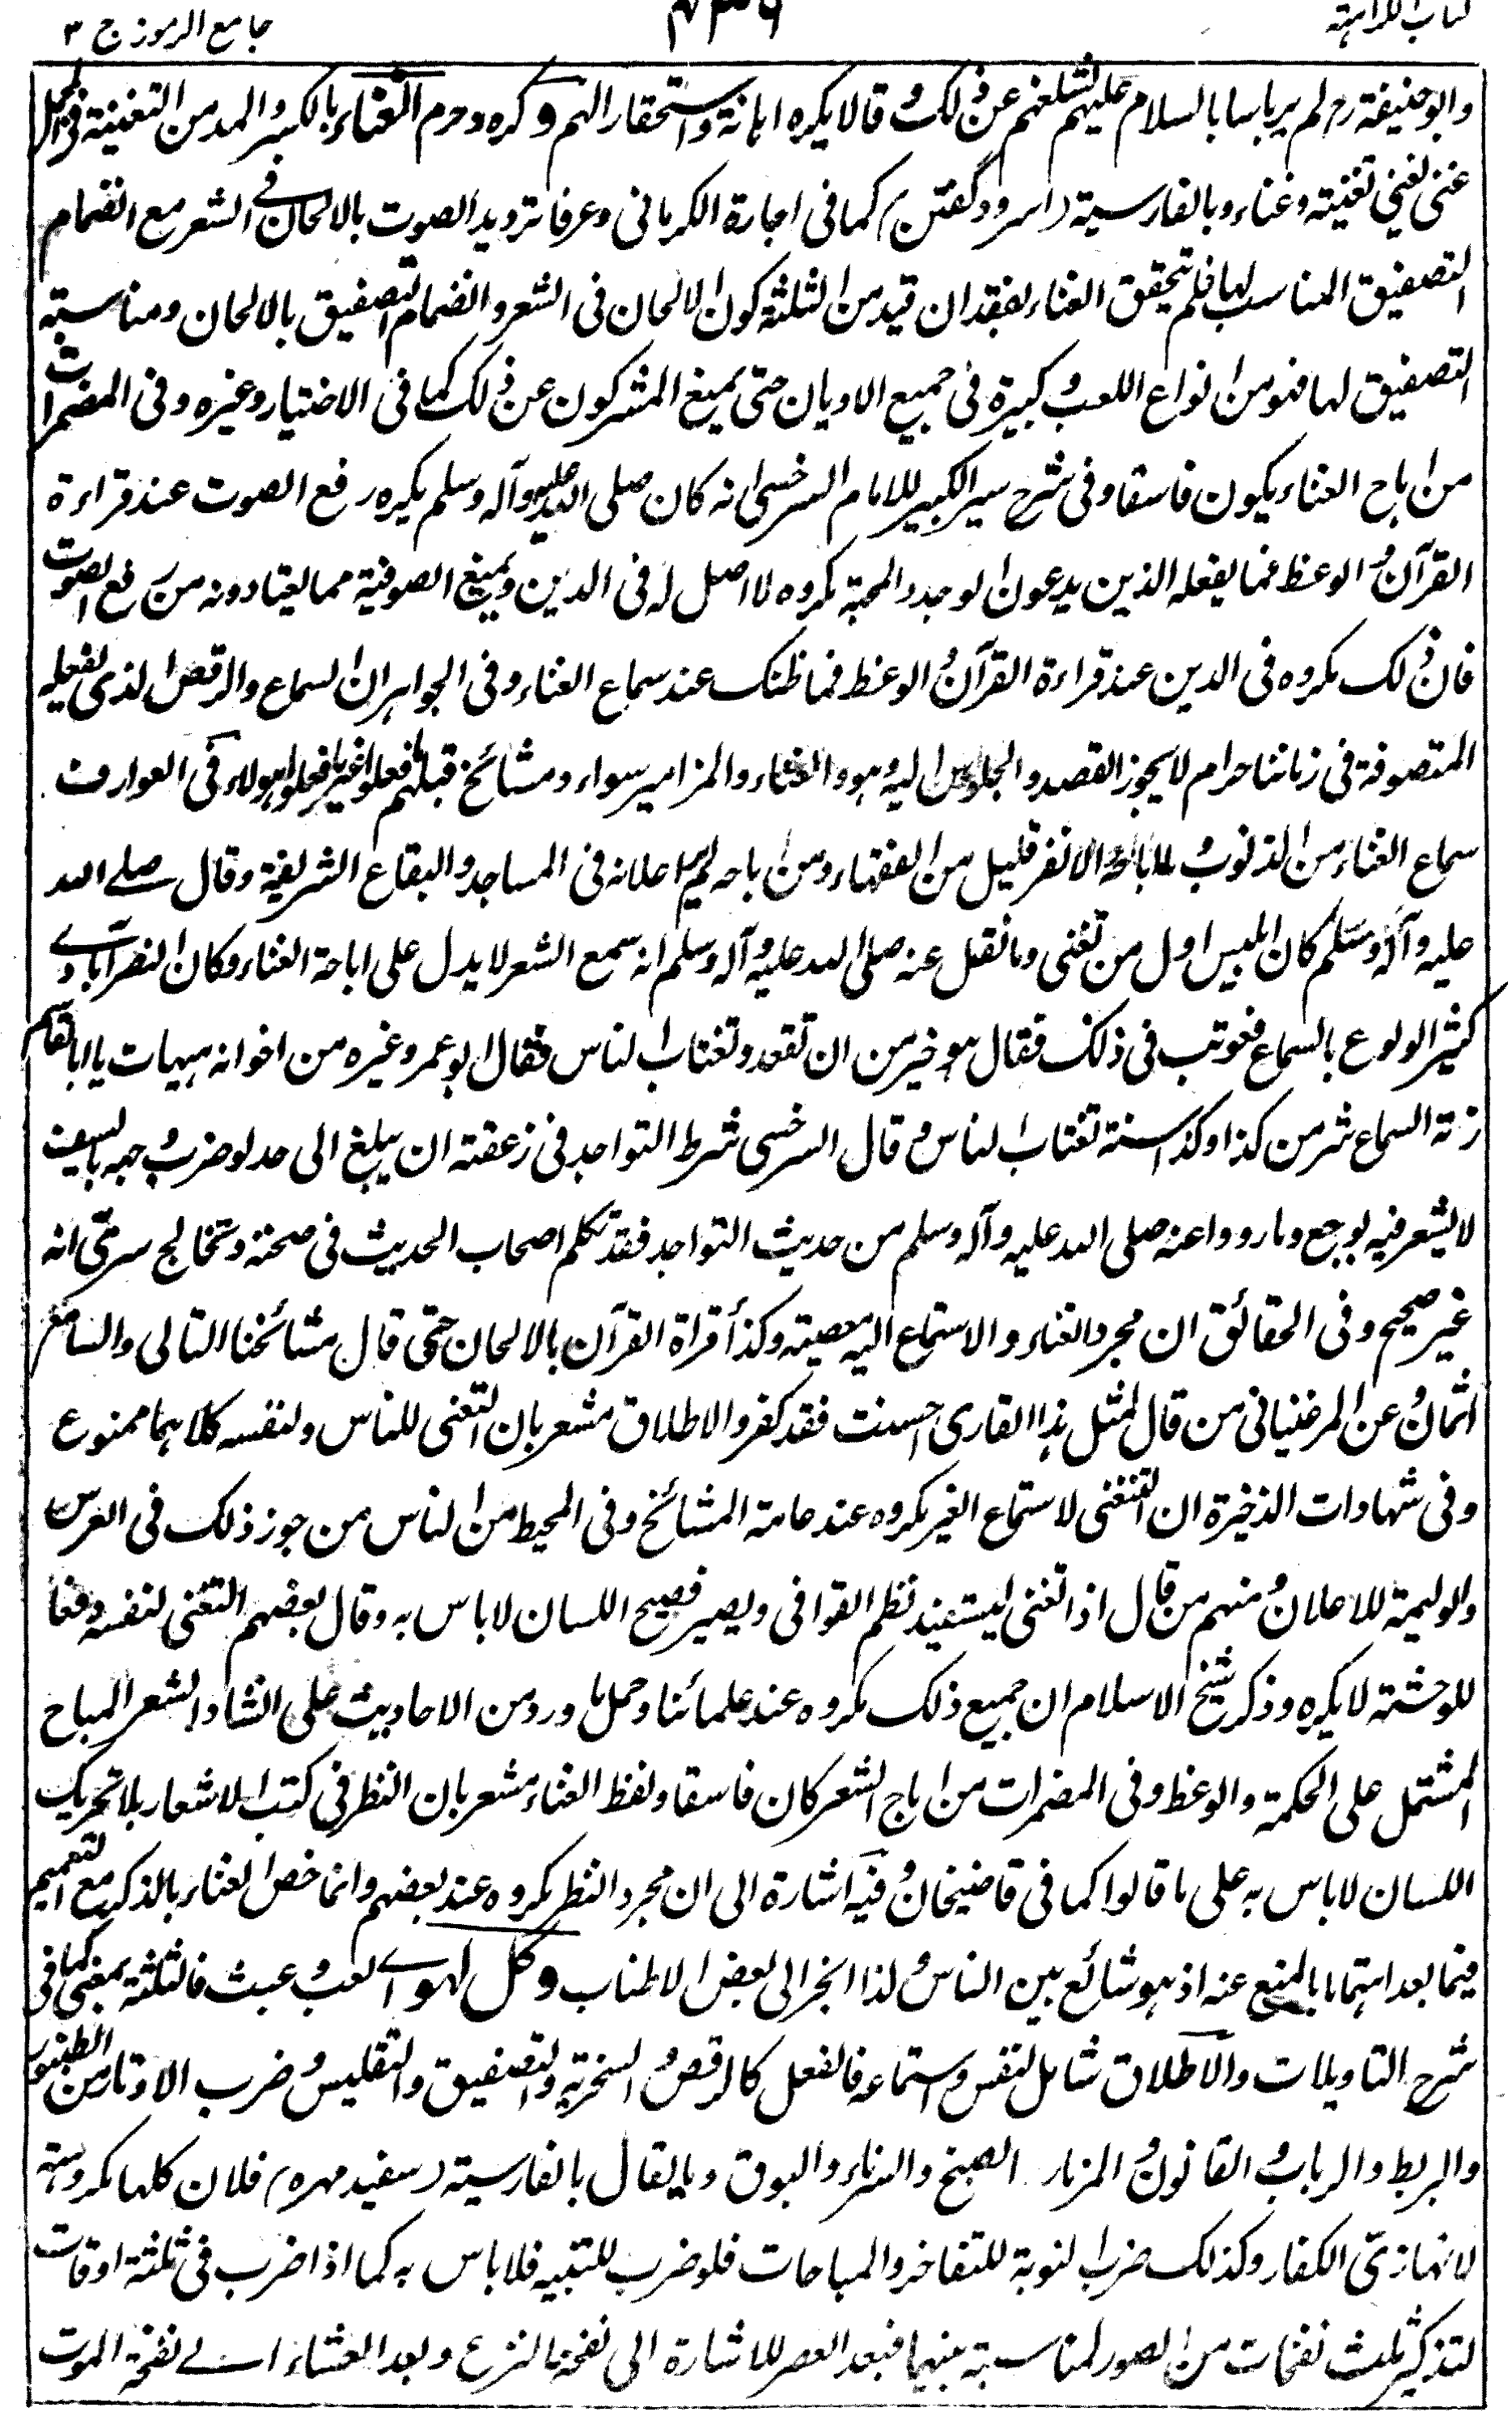 كتاب الكراهية
جامع الرموز ج ٣
وابو حنيفة رح لم ير باسا بالسلام عليهم ليشغلهم عن ذلك وقالا يكره اهانة واستحقارا لهم وكره وحرم الغناء بالكسر والمد من التغنية فى
غنى يغني تغنية وغناء وبالفارسية (سرود گفتن) كما فى اجارة الكرمانى وعرفا ترديد الصوت بالالحان فى الشعر مع انضمام
التصفيق المناسب لها فلم يتحقق الغناء بفقدان قيد من الثلثة كون الالحان فى الشعر وانضمام التصفيق بالالحان ومناسبة
التصفيق لها فهو من انواع اللعب وكبيرة فى جميع الاديان حتى يمنع المشركون عن ذلك كما فى الاختيار وغيره وفى المضمرات
من اباح الغناء يكون فاسقا وفى شرح سير الكبير للامام السرخسى انه كان صلى الله عليه وآله وسلم يكره رفع الصوت عند قراءة
القرآن والوعظ فما يفعله الذين يدعون الوجد والمحبة مكروه لا اصل له فى الدين ويمنع الصوفية مما يعتادونه من رفع الصوت
فان ذلك مكروه فى الدين عند قراءة القرآن والوعظ فما ظنك عند سماع الغناء وفى الجواهر ان السماع والرقص الذى يفعله
المتصوفة فى زماننا حرام لا يجوز القصد والجلوس اليه وهو والغناء والمزامير سواء ومشائخ قبلهم فعلوا غير ما فعلوا هولاء فى العوارف
سماع الغناء من الذنوب ما اباحه الا نفر قليل من الفقهاء ومن اباحه لم ير اعلانه فى المساجد والبقاع الشريفة وقال صلى الله
عليه وآله وسلم كان ابليس اول من تغنى وما نقل عنه صلى الله عليه وآله وسلم انه سمع الشعر لا يدل على اباحة الغناء وكان النصرآبادي
كثير الولوع بالسماع فعوتب فى ذلك فقال هو خير من ان تقعد وتغتاب الناس فقال ابو عمرو وغيره من اخوانه هيهات يا ابا القاسم
زلة السماع شر من كذا وكذا سنة تغتاب الناس وقال السرخسى شرط التواجد فى زعقته ان يبلغ الى حد لو ضرب وجهه بالسيف
لا يشعر فيه بوجع وما رووا عنه صلى الله عليه وآله وسلم من حديث التواجد فقد تكلم اصحاب الحديث فى صحته وتخالج سرى انه
غير صحيح وفى الحقائق ان مجرد الغناء والاستماع اليه معصية وكذا قراة القرآن بالالحان حتى قال مشائخنا التالى والسامع
اثمان وعن المرغينانى من قال لمثل هذا القارى احسنت فقد كفر والاطلاق مشعر بان التغنى للناس ولنفسه كلاهما ممنوع
وفى شهادات الذخيرة ان التغنى لاستماع الغير مكروه عند عامة المشائخ وفى المحيط من الناس من جوز ذلك فى العرس
والوليمة للاعلان ومنهم من قال اذا تغنى ليستفيد نظم القوافى ويصير فصيح اللسان لا باس به وقال بعضهم التغنى لنفسه دفعا
للوحشة لا يكره وذكر شيخ الاسلام ان جميع ذلك مكروه عند علمائنا وحمل ما ورد من الاحاديث على انشاد الشعر المباح
المشتمل على الحكمة والوعظ وفى المضمرات من اباح الشعر كان فاسقا ولفظ الغناء مشعر بان النظر فى كتب الاشعار بلا تحريك
اللسان لا باس به على ما قالوا كما فى قاضيخان وفيه اشارة الى ان مجرد النظر مكروه عند بعضهم وانما خص الغناء بالذكر مع التعميم
فيما بعد اهتماما بالمنع عنه اذ هو شائع بين الناس ولذا انجر الى بعض الاطناب وكل لهو اے لعب وعبث فالثلثة بمعنى كما فى
شرح التاويلات والاطلاق شامل لنفس واستماعه فالفعل كالرقص والسخرية والتصفيق والتقليس وضرب الاوتار من الطنبور
والبربط والرباب والقانون والمزمار والصنج والبوق وما يقال بالفارسية (سفيد مهره) فلان كلها مكروهة
لانها زىّ الكفار وكذلك ضرب النوبة للتفاخر والمباحات فلو ضرب للتنبيه فلا باس به كما اذا ضرب فى ثلثة اوقات
لتذكير ثلث نفخات من الصور لمناسبة بينهما فبعد العصر للاشارة الى نفخة الفزع وبعد العشاء الے نفخة الموت